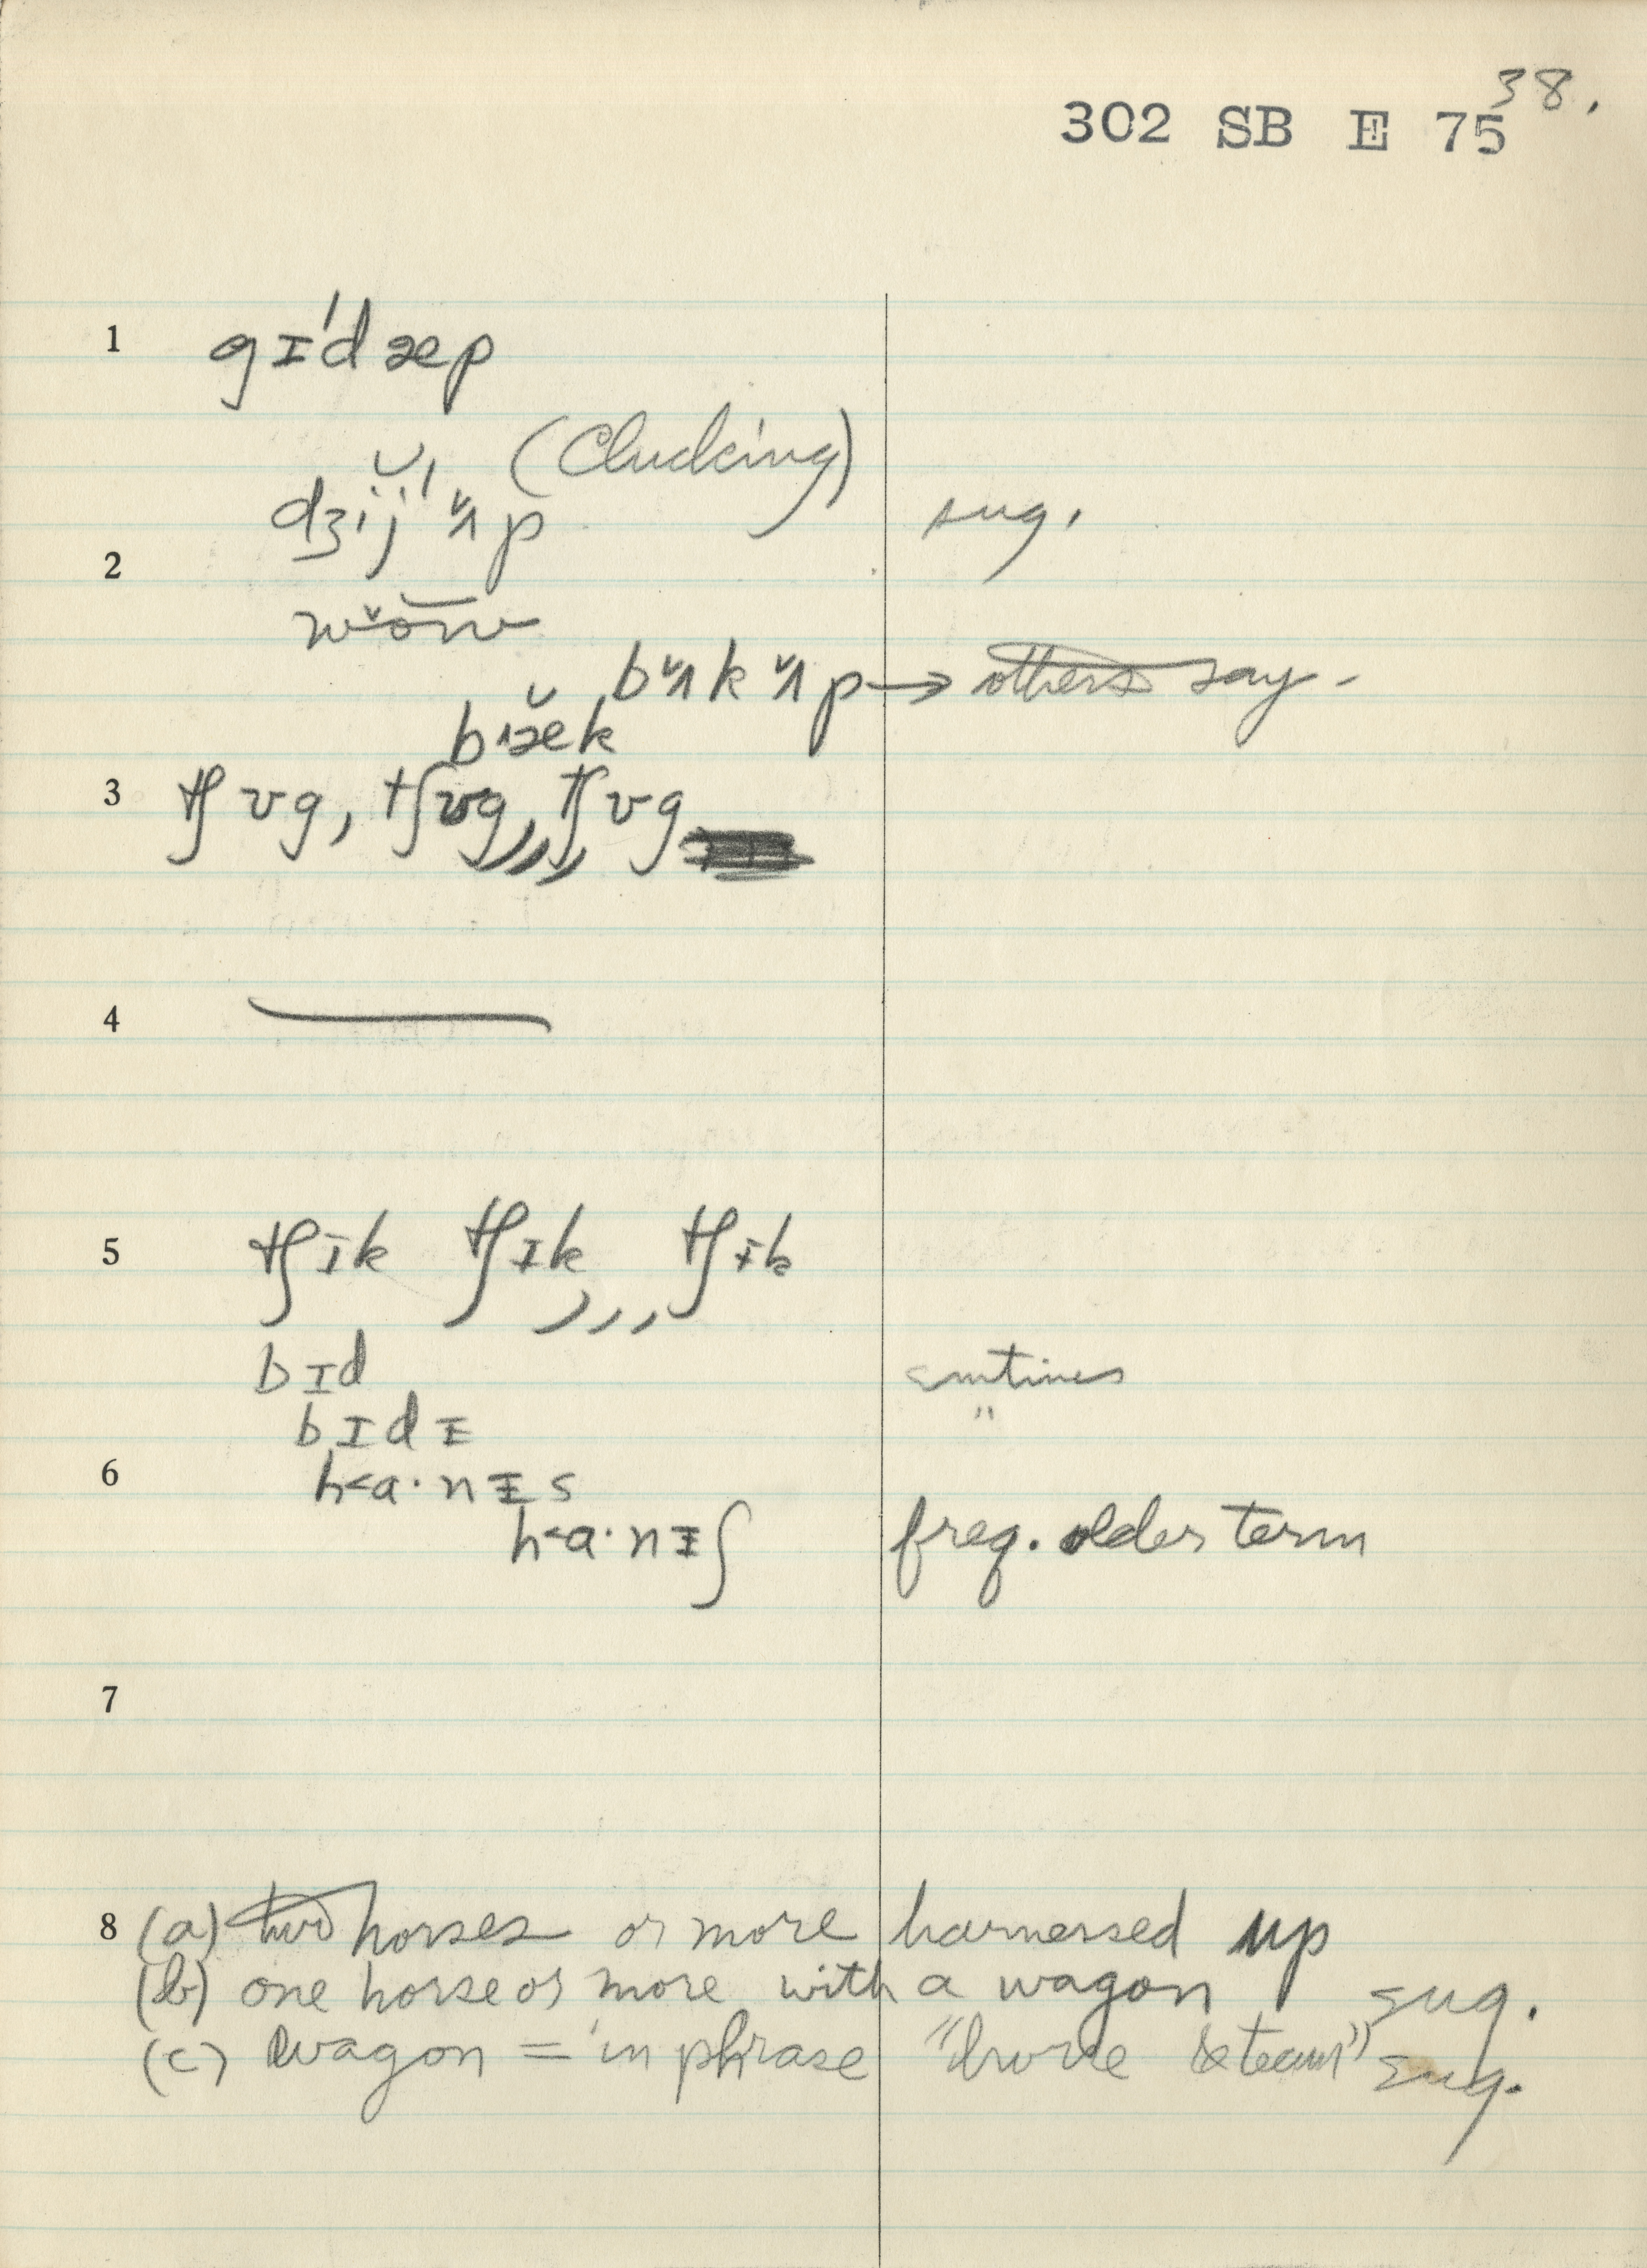 38.
302 SB E 75
1 gɪ́dæp
(Clucking)
dʒij ʌ̆p sug.
2
bʌ̆k ʌ̆p → others say -
3 tʃʊg, tʃʊg,,,, tʃʊg
4 —
5 tʃɪk tʃɪk,,, tʃɪk
bɪd smtimes
bɪdɪ "
6 h<a·nɪs
h<a·nɪʃ freq. older term
7
8 (a) two horses or more harnessed up
(b) one horse or more with a wagon sug.
(c) wagon = in phrase "horse & team" sug.